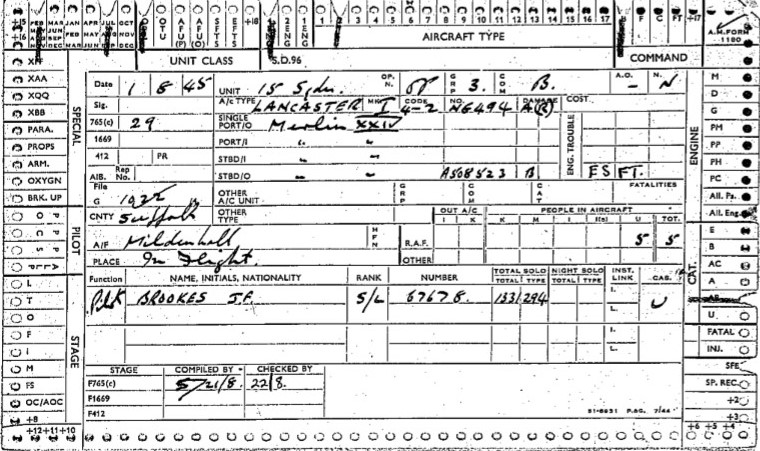 +15 FEB MAR JAN APR JUL OCT
+16 MAR JUN FEB MAY AUG NOV
DEC SEP MAR JUN SEP DEC
OTU AFU (P) AFU (O) SFTS EFTS +18 2 ENG 1 ENG 1 3 4 5 6 7 8 9 10 11 12 13 14 15 16 17 F C FT +17
UNIT CLASS S.D.96 AIRCRAFT TYPE COMMAND A.M. FORM 1180
Date 1 8 45 UNIT 15 Sqdn. OP. N. OP GRP 3. COM B. A.O. – N. N
Sig. A/C TYPE LANCASTER MK I CODE 4-2 NO. NG494 DAMAGE A(R) COST
765(c) 29 SINGLE PORT/O Merlin XXIV
1669 PORT/I " "
412 PR STBD/I " "
AIB. Rep No. STBD/O " " A508523 B ENG. TROUBLE FS FT.
File G 1922 OTHER A/C UNIT GRP COM CAT FATALITIES
CNTY Suffolk OTHER TYPE OUT A/C I K PEOPLE IN AIRCRAFT K M I I(s) U TOT.
A/F Mildenhall HFN R.A.F. 5 5
PLACE In Flight. OTHER
Function NAME, INITIALS, NATIONALITY RANK NUMBER TOTAL SOLO TOTAL TYPE NIGHT SOLO TOTAL TYPE INST. LINK CAS.
Pilot BROOKES J.F. S/L 67678. 1531 294 I. L. U
I.
L.
STAGE COMPILED BY CHECKED BY
F765(c) 5/21/8. 22/8.
F1669
F412
51-8851 P.BG. 7/44
XFF
XAA
XQQ
XBB
PARA.
PROPS
ARM.
OXYGN
BRK. UP
SPECIAL
PILOT
L
T
O
F
I
M
FS
OC/AOC
+8
STAGE
+12+11+10
M
D
G
PM
PP
PH
PC
All. Ps.
All. Eng.
ENGINE
E
B
AC
A
AR
U.
CAT.
FATAL
INJ.
SFE
SP. REC.
+2
+3
+6 +5 +4